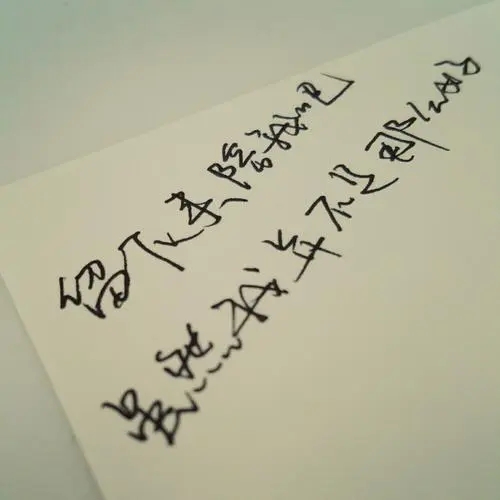 留下来陪我吧
虽然我并不是那么好